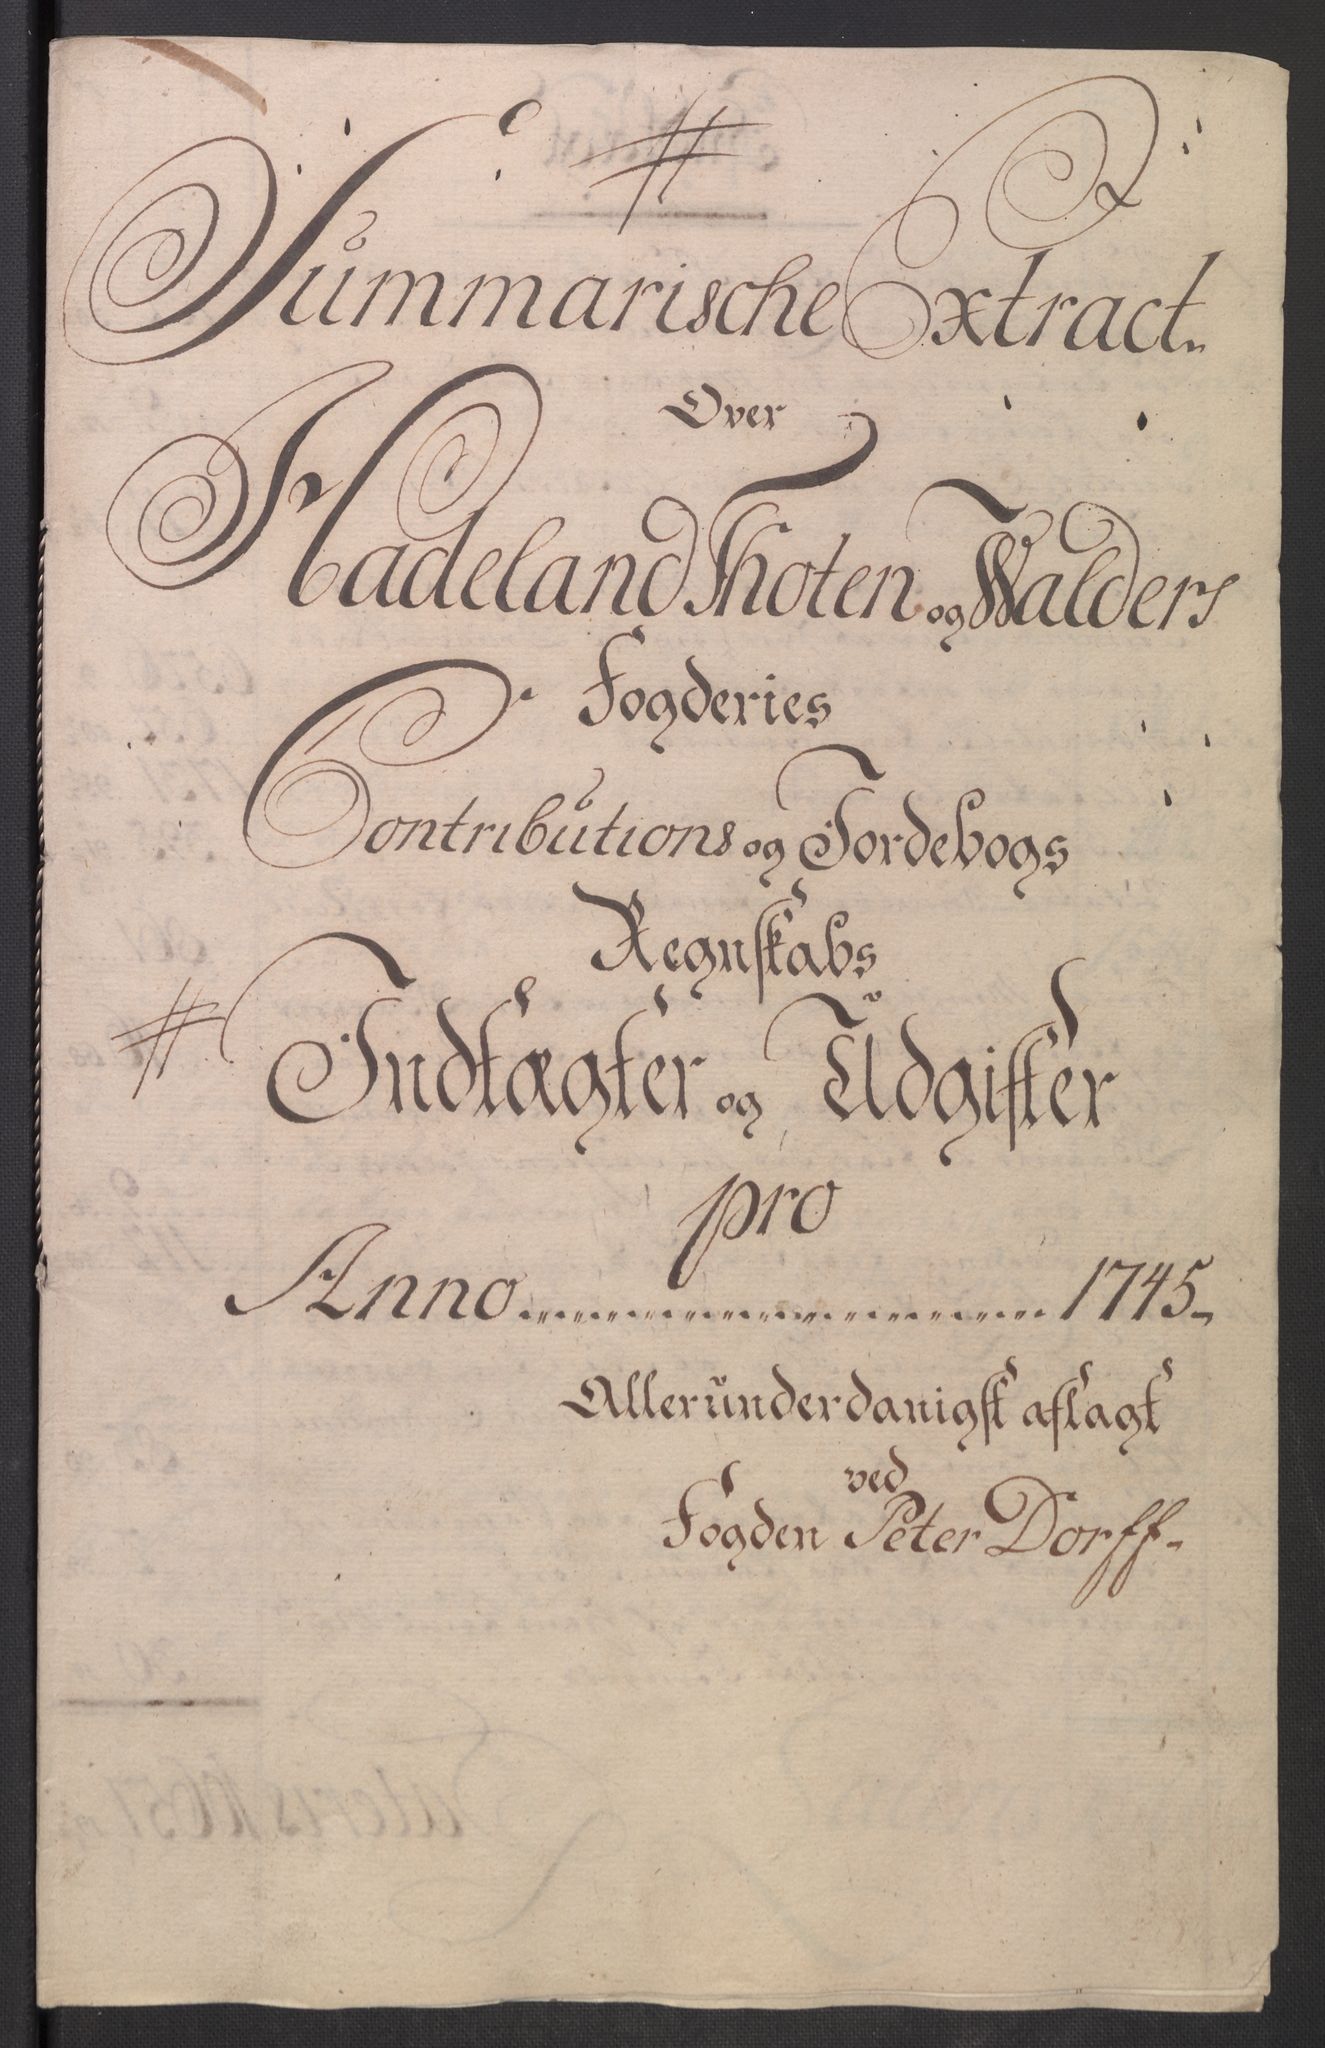 Summarische Extract.
Over
Hadeland Thoten og Walders
Fogderies
Contributions og Jordebogs
Regnskabs
Indtægter og Udgifter
pro
Anno 1745
Allerunderdanigst aflagt
ved
Fogden Peter Dorff